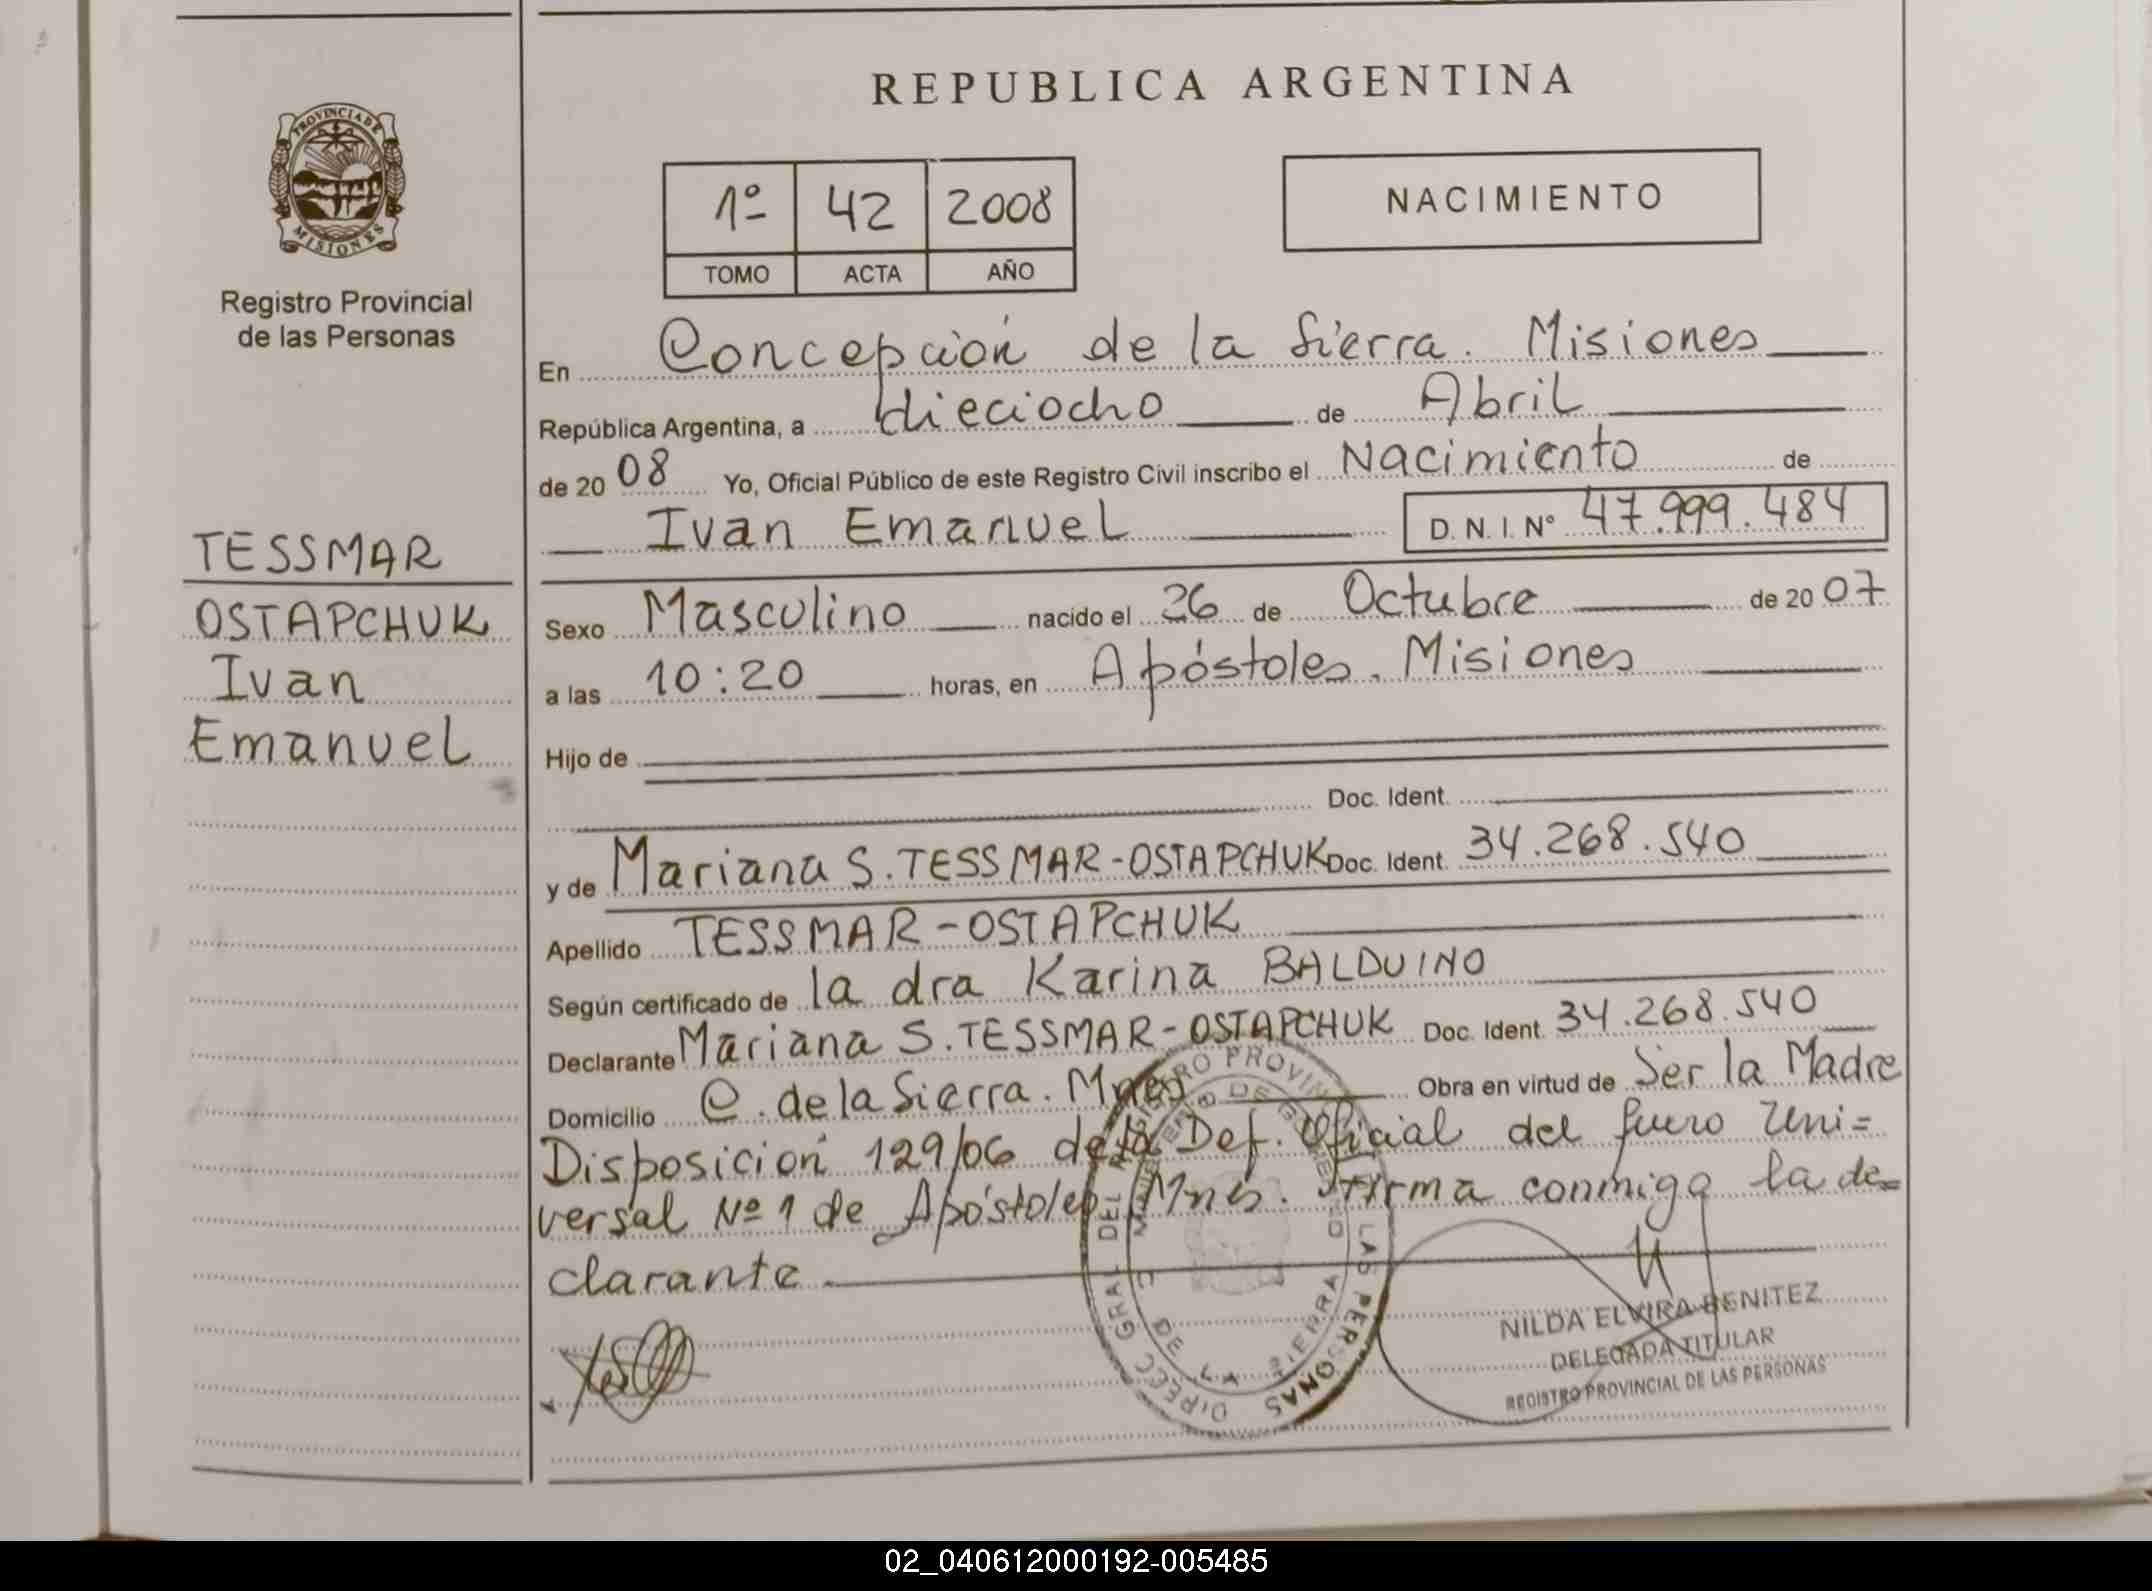 REPUBLICA ARGENTINA
PROVINCIA DE
MISIONES
Registro Provincial
de las Personas
1º 42 2008
TOMO ACTA AÑO
NACIMIENTO
TESSMAR
OSTAPCHUK
Ivan
Emanuel
En Concepción de la Sierra. Misiones
República Argentina, a dieciocho de Abril
de 2008 Yo, Oficial Público de este Registro Civil inscribo el Nacimiento de
Ivan Emanuel D.N.I. N° 47.999.484
Sexo Masculino nacido el 26 de Octubre de 2007
a las 10:20 horas, en Apóstoles. Misiones
Hijo de
Doc. Ident.
y de Mariana S. TESSMAR-OSTAPCHUK Doc. Ident. 34.268.540
Apellido TESSMAR-OSTAPCHUK
Según certificado de la dra Karina BALDUINO
Declarante Mariana S. TESSMAR-OSTAPCHUK Doc. Ident. 34.268.540
Domicilio C. de la Sierra. Mnes Obra en virtud de Ser la Madre
Disposición 129/06 de la Def. Oficial del fuero Uni=
versal Nº 1 de Apóstoles, Mnes. Firma conmigo la de=
clarante
DIRECC GRAL DEL REGISTRO PROVINCIAL DE LAS PERSONAS
DE LA SIERRA
NILDA ELVIRA BENITEZ
DELEGADA TITULAR
REGISTRO PROVINCIAL DE LAS PERSONAS
02_040612000192-005485